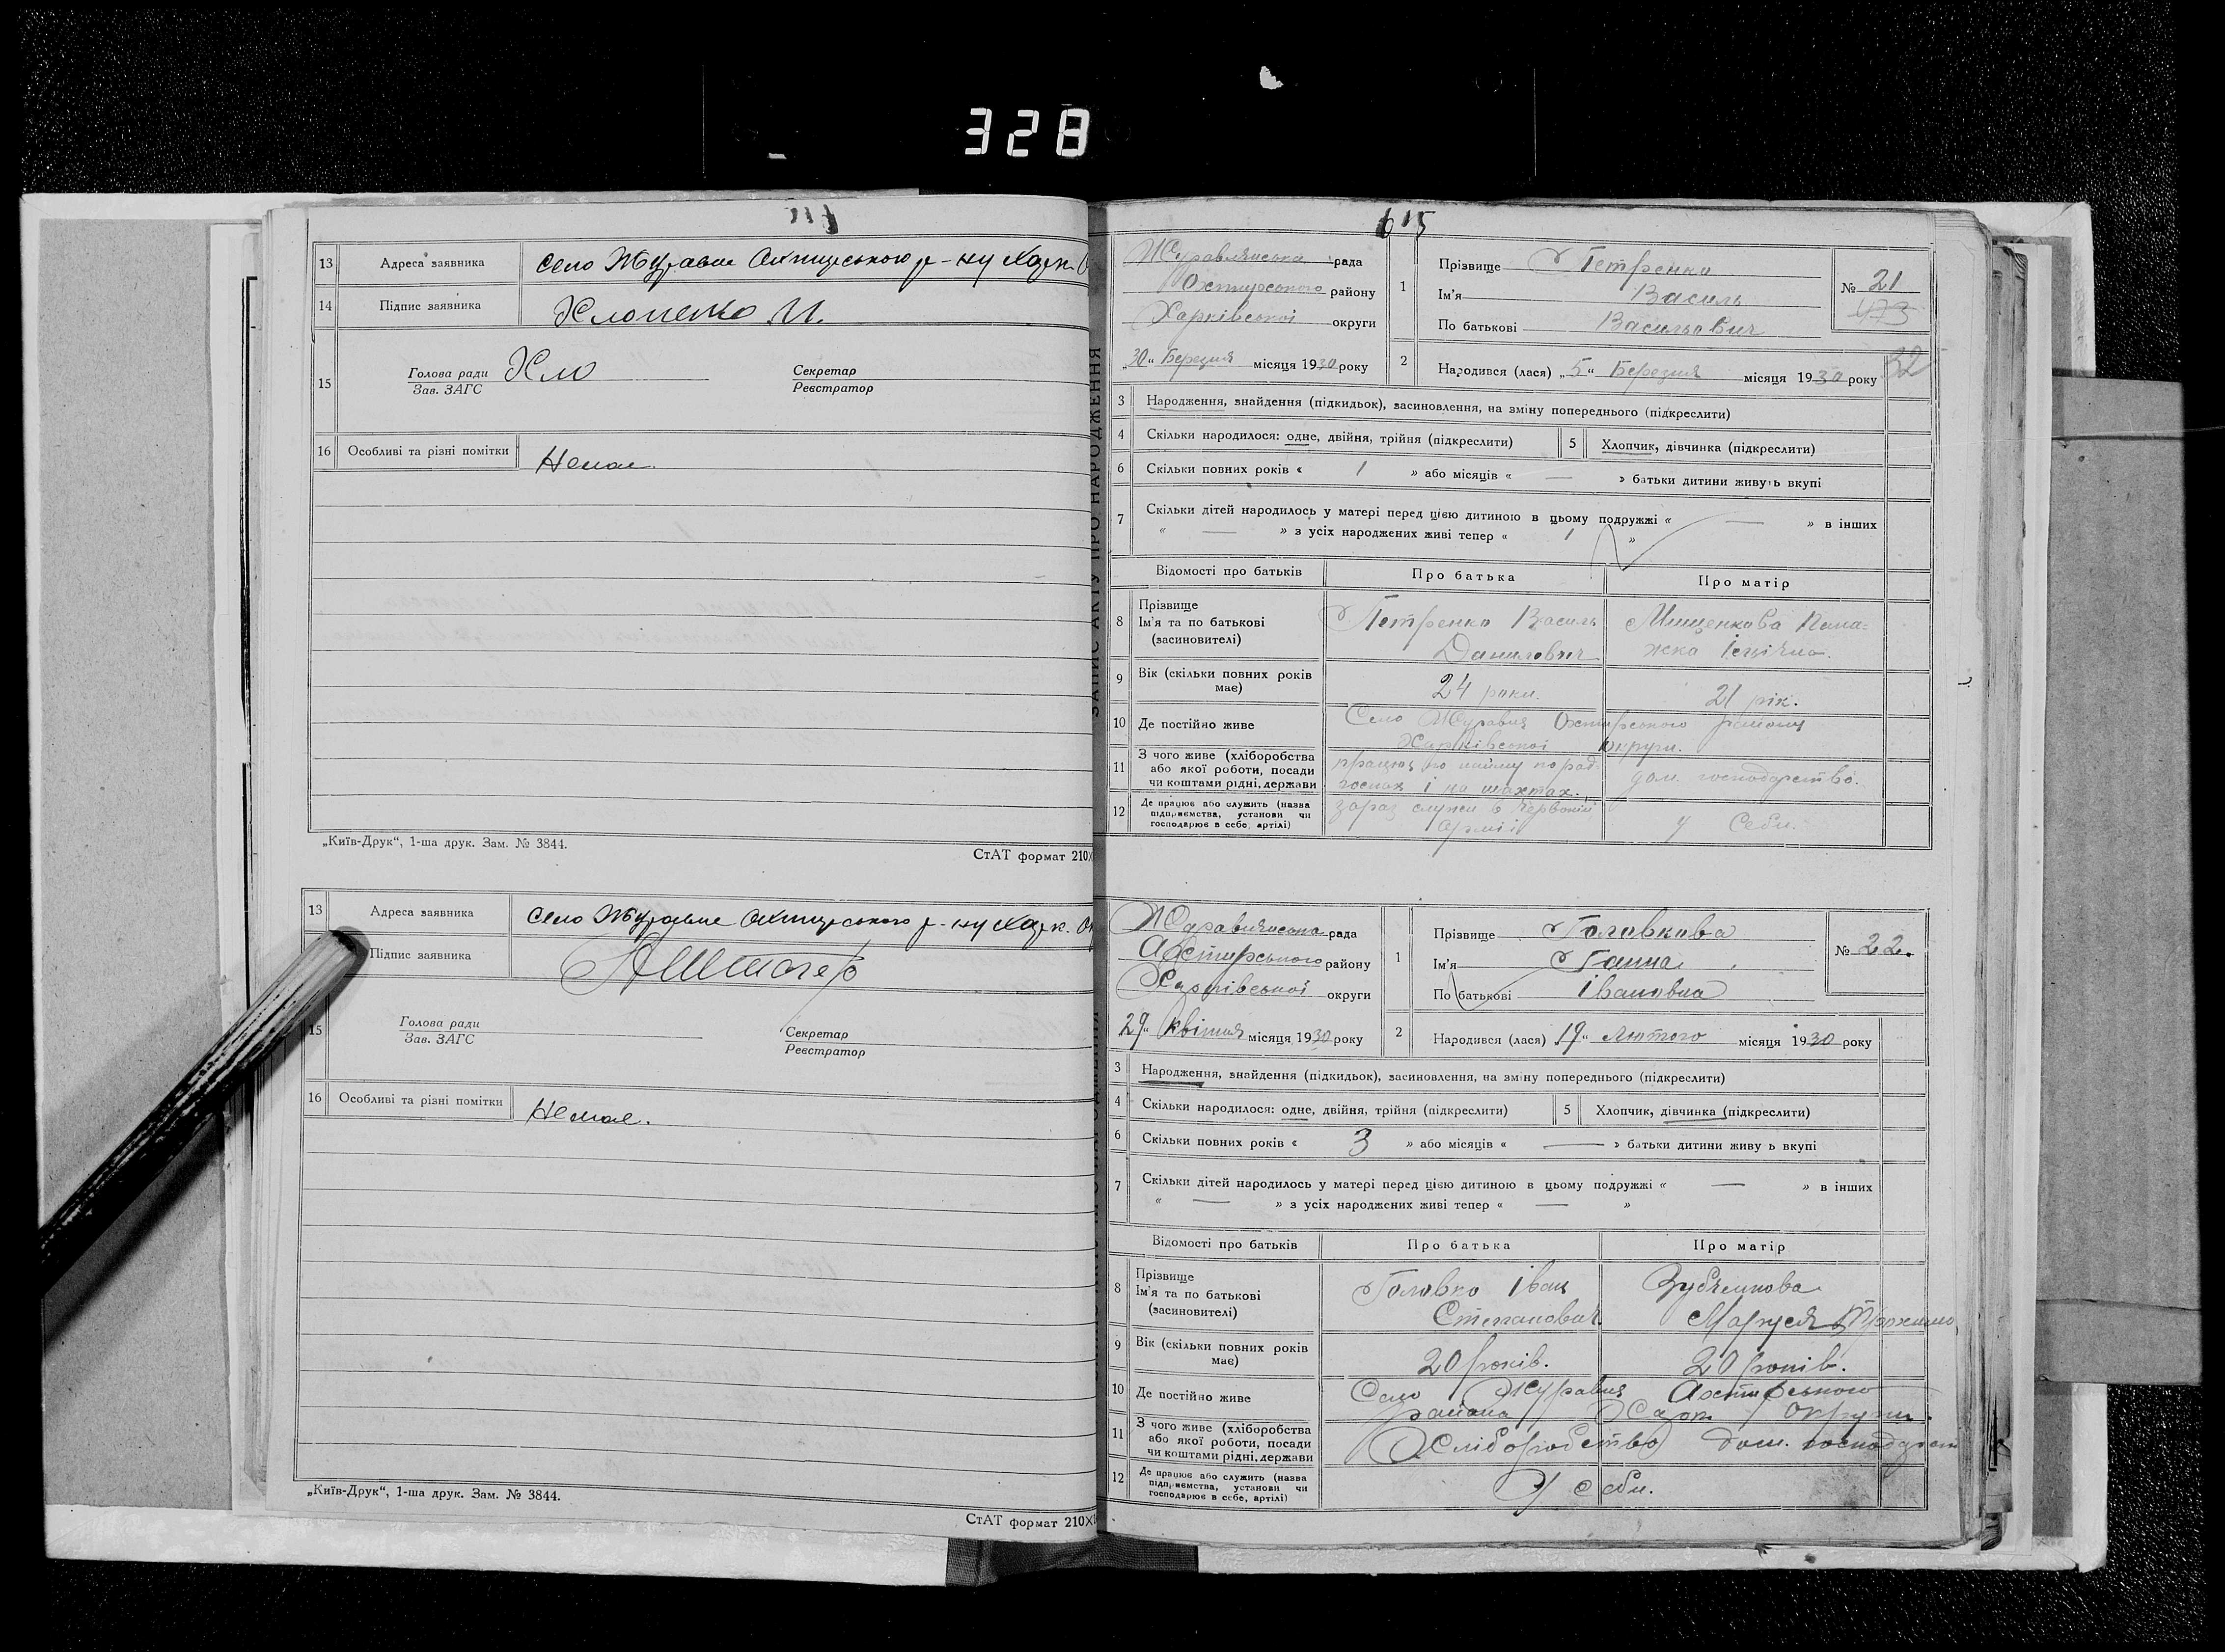 328
13 Адреса заявника Село Журавне Охтирського р-ну Харк. О
14 Підпис заявника Хлопенко И.
15 Голова ради Хло Секретар
Зав. ЗАГС Реєстратор
16 Особливі та різні помітки Немає.
„Київ-Друк“, 1-ша друк. Зам. № 3844.
СтАТ формат 210×
13 Адреса заявника Село Журавне Охтирського р-ну Харк. Ок
Підпис заявника
15 Голова ради Секретар
Зав. ЗАГС Реєстратор
16 Особливі та різні помітки Немає.
„Київ-Друк“, 1-ша друк. Зам. № 3844.
СтАТ формат 210×
ЗАПИС АКТУ ПРО НАРОДЖЕННЯ
615
Журавлянська рада
Охтирського району
Харківської округи
„30“ Березня місяця 1930 року
1 Прізвище Петренко
Ім'я Василь
По батькові Васильович
№ 21
473
32
2 Народився (лася) „5“ Березня місяця 1930 року
3 Народження, знайдення (підкидьок), засиновлення, на зміну попереднього (підкреслити)
4 Скільки народилося: одне, двійня, трійня (підкреслити) 5 Хлопчик, дівчинка (підкреслити)
6 Скільки повних років « 1 » або місяців « — » батьки дитини живуть вкупі
7 Скільки дітей народилось у матері перед цією дитиною в цьому подружжі « — » в інших
« — » з усіх народжених живі тепер « 1 »
Відомості про батьків Про батька Про матір
8 Прізвище
Ім'я та по батькові
(засиновителі)
Петренко Василь
Данилович
Мищенкова Пана=
жка
9 Вік (скільки повних років
має)
24 роки. 21 рік.
10 Де постійно живе Село Журавня Охтирського району
Харківської округи.
11 З чого живе (хліборобства
або якої роботи, посади
чи коштами рідні, держави
працює по найму по рад.
госпах і на шахтах.
дом. господарство.
12 Де працює або служить (назва
підприємства, установи чи
господарює в себе, артілі)
зараз служи в Червоній
армії
у себи.
Журавлянська рада
Охтирського району
Харківської округи
29“ Квітня місяця 1930 року
1 Прізвище Головкова
Ім'я Ганна
По батькові Івановна
№ 22.
2 Народився (лася) 19“ Лютого місяця 1930 року
3 Народження, знайдення (підкидьок), засиновлення, на зміну попереднього (підкреслити)
4 Скільки народилося: одне, двійня, трійня (підкреслити) 5 Хлопчик, дівчинка (підкреслити)
6 Скільки повних років « 3 » або місяців « — » батьки дитини живу ь вкупі
7 Скільки дітей народилось у матері перед цією дитиною в цьому подружжі « — » в інших
« — » з усіх народжених живі тепер « — »
Відомості про батьків Про батька Про матір
8 Прізвище
Ім'я та по батькові
(засиновителі)
Головко Іван
Степанович
Маруся
9 Вік (скільки повних років
має)
20 років. 20 років.
10 Де постійно живе Село Журавня Охтирського
района Харк. Округи.
11 З чого живе (хліборобства
або якої роботи, посади
чи коштами рідні, держави
Хліборобство дом. господарст
12 Де працює або служить (назва
підприємства, установи чи
господарює в себе, артілі)
У себи.